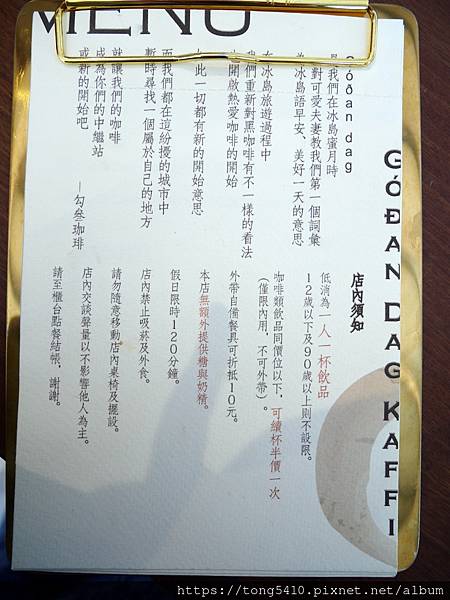 MENU
Góðan dag
是我們在冰島蜜月時
對可愛夫妻教我們第一個詞彙
為冰島語早安、美好一天的意思
在冰島旅遊過程中
我們重新對黑咖啡有不一樣的看法
也開啟熱愛咖啡的開始
如此一切都有新的開始意思
而我們都在這紛擾的城市中
暫時尋找一個屬於自己的地方
就讓我們的咖啡
成為你們的中繼站
或新的開始吧
—勾叁珈琲
GÓÐAN DAG KAFFI
店內須知
低消為一人一杯飲品
12歲以下及90歲以上則不設限。
咖啡類飲品同價位以下,可續杯半價一次
(僅限內用,不可外帶)。
外帶自備餐具可折抵10元。
本店無額外提供糖與奶精。
假日限時120分鐘。
店內禁止吸菸及外食。
請勿隨意移動店內桌椅及擺設。
店內交談聲量以不影響他人為主。
請至櫃台點餐結帳,謝謝。
https://tong5410.pixnet.net/album